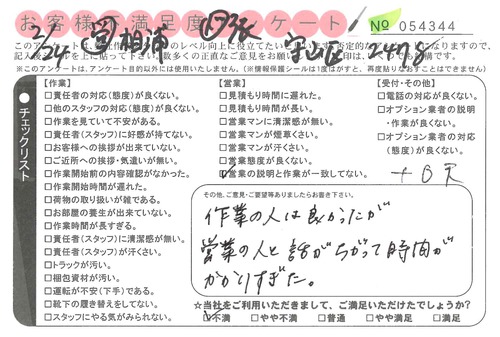 お客様満足度アンケート
No 054344
2/24 相浦 守山区 2478
※このアンケートは、アンケート目的以外には使用いたしません。(※情報保護シールは1度はがすと、再度貼りなおすことはできません)
チェックリスト
【作業】
□責任者の対応(態度)が良くない。
□他のスタッフの対応(態度)が良くない。
□作業を見ていて不安がある。
□責任者(スタッフ)に好感が持てない。
□お客様への挨拶が出来ていない。
□ご近所への挨拶・気遣いが無い。
□作業開始前の内容確認がなかった。
□作業開始時間が遅れた。
□荷物の取り扱いが雑である。
□お部屋の養生が出来ていない。
□作業時間が長すぎる。
□責任者(スタッフ)に清潔感が無い。
□責任者(スタッフ)が汗くさい。
□トラックが汚い。
□梱包資材が汚い。
□運転が不安(下手)である。
□靴下の履き替えをしてない。
□スタッフにやる気がみられない。
【営業】
□見積もり時間に遅れた。
□見積もり時間が長い。
□営業マンに清潔感が無い。
□営業マンが煙草くさい。
□営業マンが汗くさい。
□営業態度が良くない。
□営業の説明と作業が一致してない。
【受付・その他】
□電話の対応が良くない。
□オプション業者の説明・作業が良くない。
□オプション業者の対応(態度)が良くない。
その他、ご意見・ご要望等ありましたらお書き下さい。
作業の人は良かったが
営業の人と話がちがって時間が
かかりすぎた。
☆当社をご利用いただきまして、ご満足いただけたでしょうか?
□不満 □やや不満 □普通 □やや満足 □満足